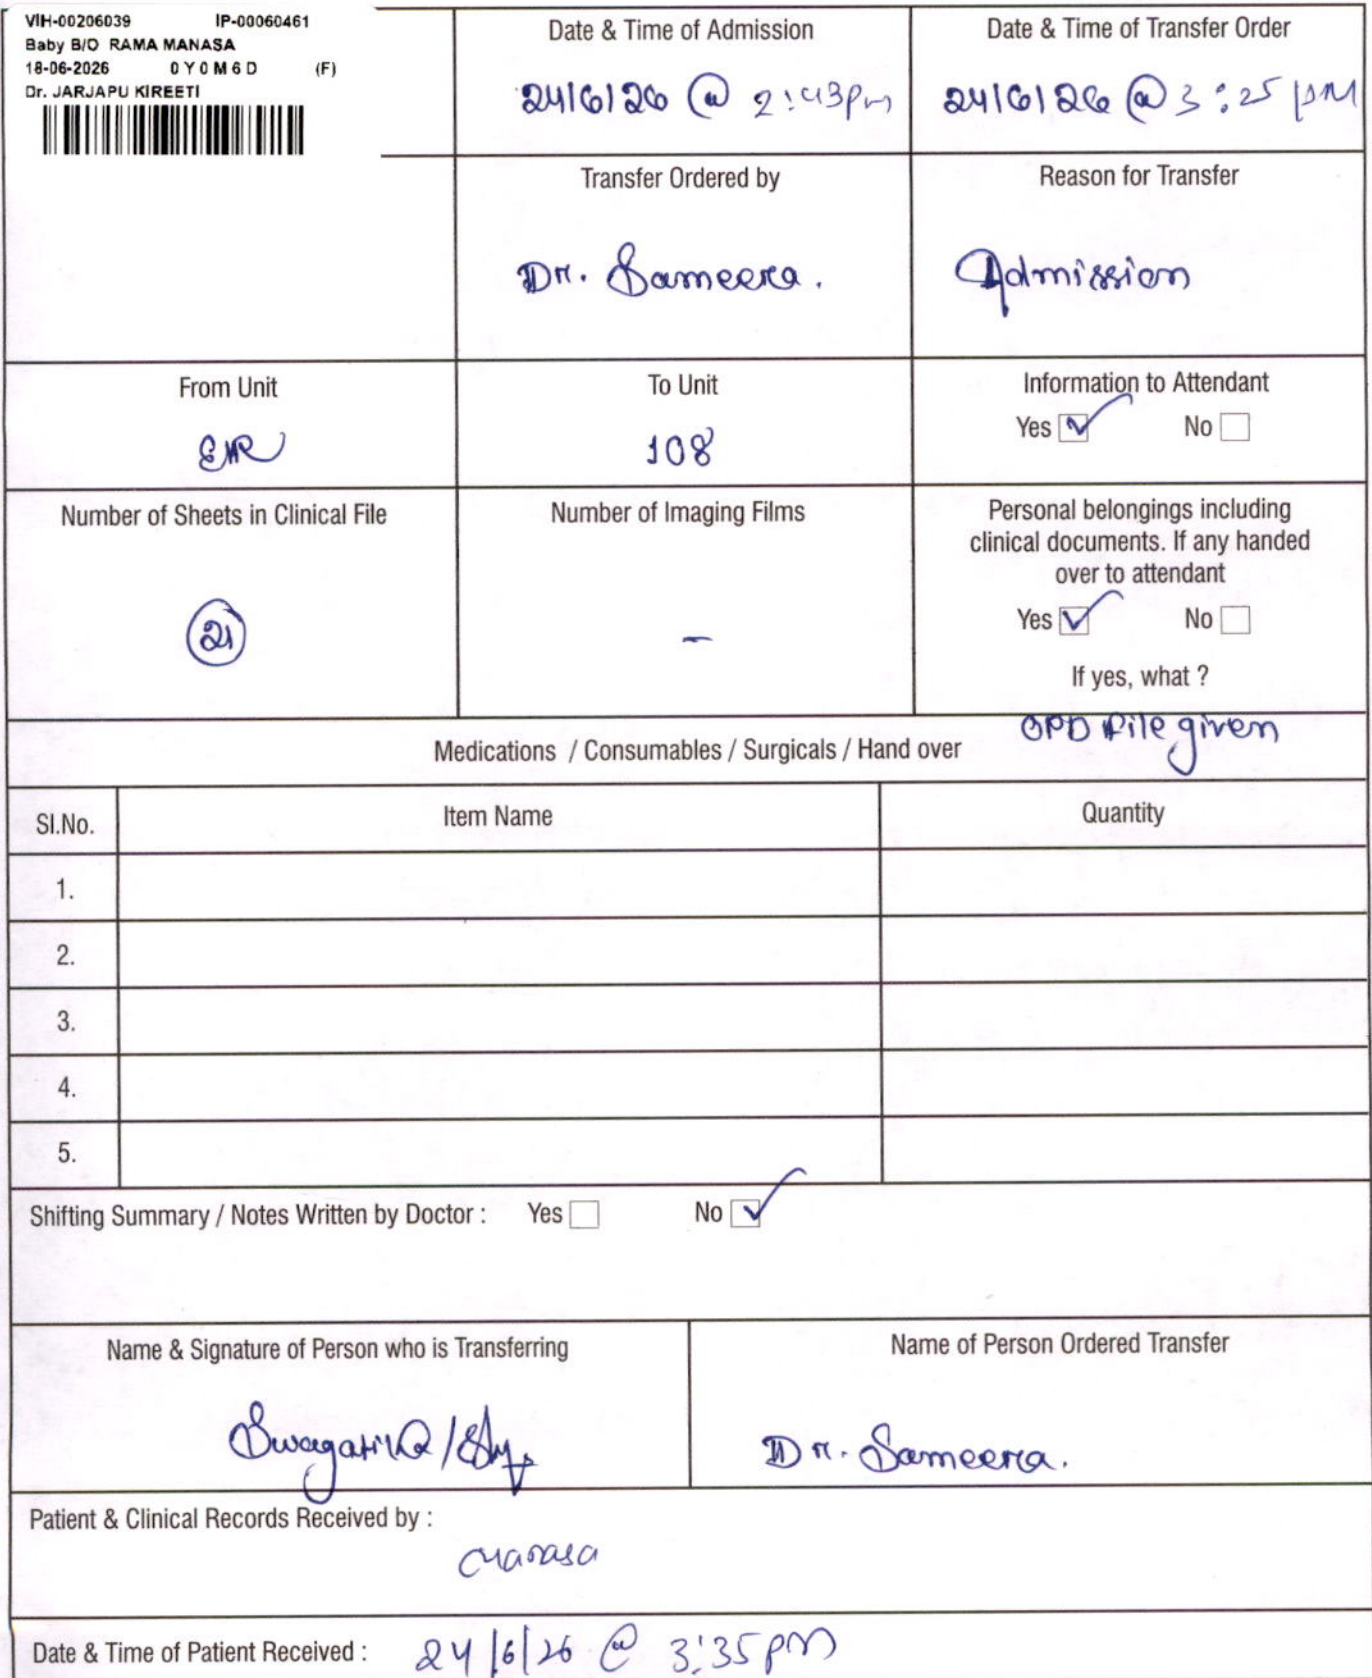 VIH-00206039 IP-00060461
Baby B/O RAMA MANASA
18-06-2026 0 Y 0 M 6 D (F)
Dr. JARJAPU KIREETI
Date & Time of Admission
24/6/26 @ 2:43pm
Date & Time of Transfer Order
24/6/26 @ 3:25 pm
Transfer Ordered by
Dr. Sameera.
Reason for Transfer
Admission
From Unit
EMR
To Unit
108
Information to Attendant
Yes ☑ No ☐
Number of Sheets in Clinical File
21
Number of Imaging Films
–
Personal belongings including
clinical documents. If any handed
over to attendant
Yes ☑ No ☐
If yes, what ?
OPD file given
Medications / Consumables / Surgicals / Hand over
Sl.No. Item Name Quantity
1.
2.
3.
4.
5.
Shifting Summary / Notes Written by Doctor : Yes ☐ No ☑
Name & Signature of Person who is Transferring
Swagatika/
Name of Person Ordered Transfer
Dr. Sameera.
Patient & Clinical Records Received by :
Manasa
Date & Time of Patient Received : 24/6/26 @ 3:35pm